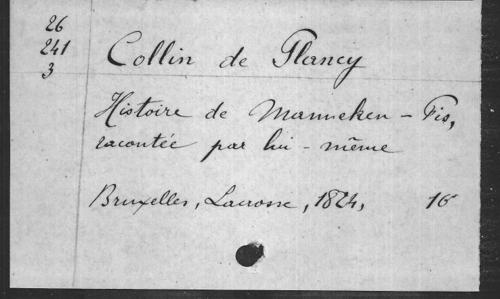 26
241
3
Collin de Plancy
Histoire de Manneken-Pis,
racontée par lui-même
Bruxelles, Lacrosse, 1824, 16